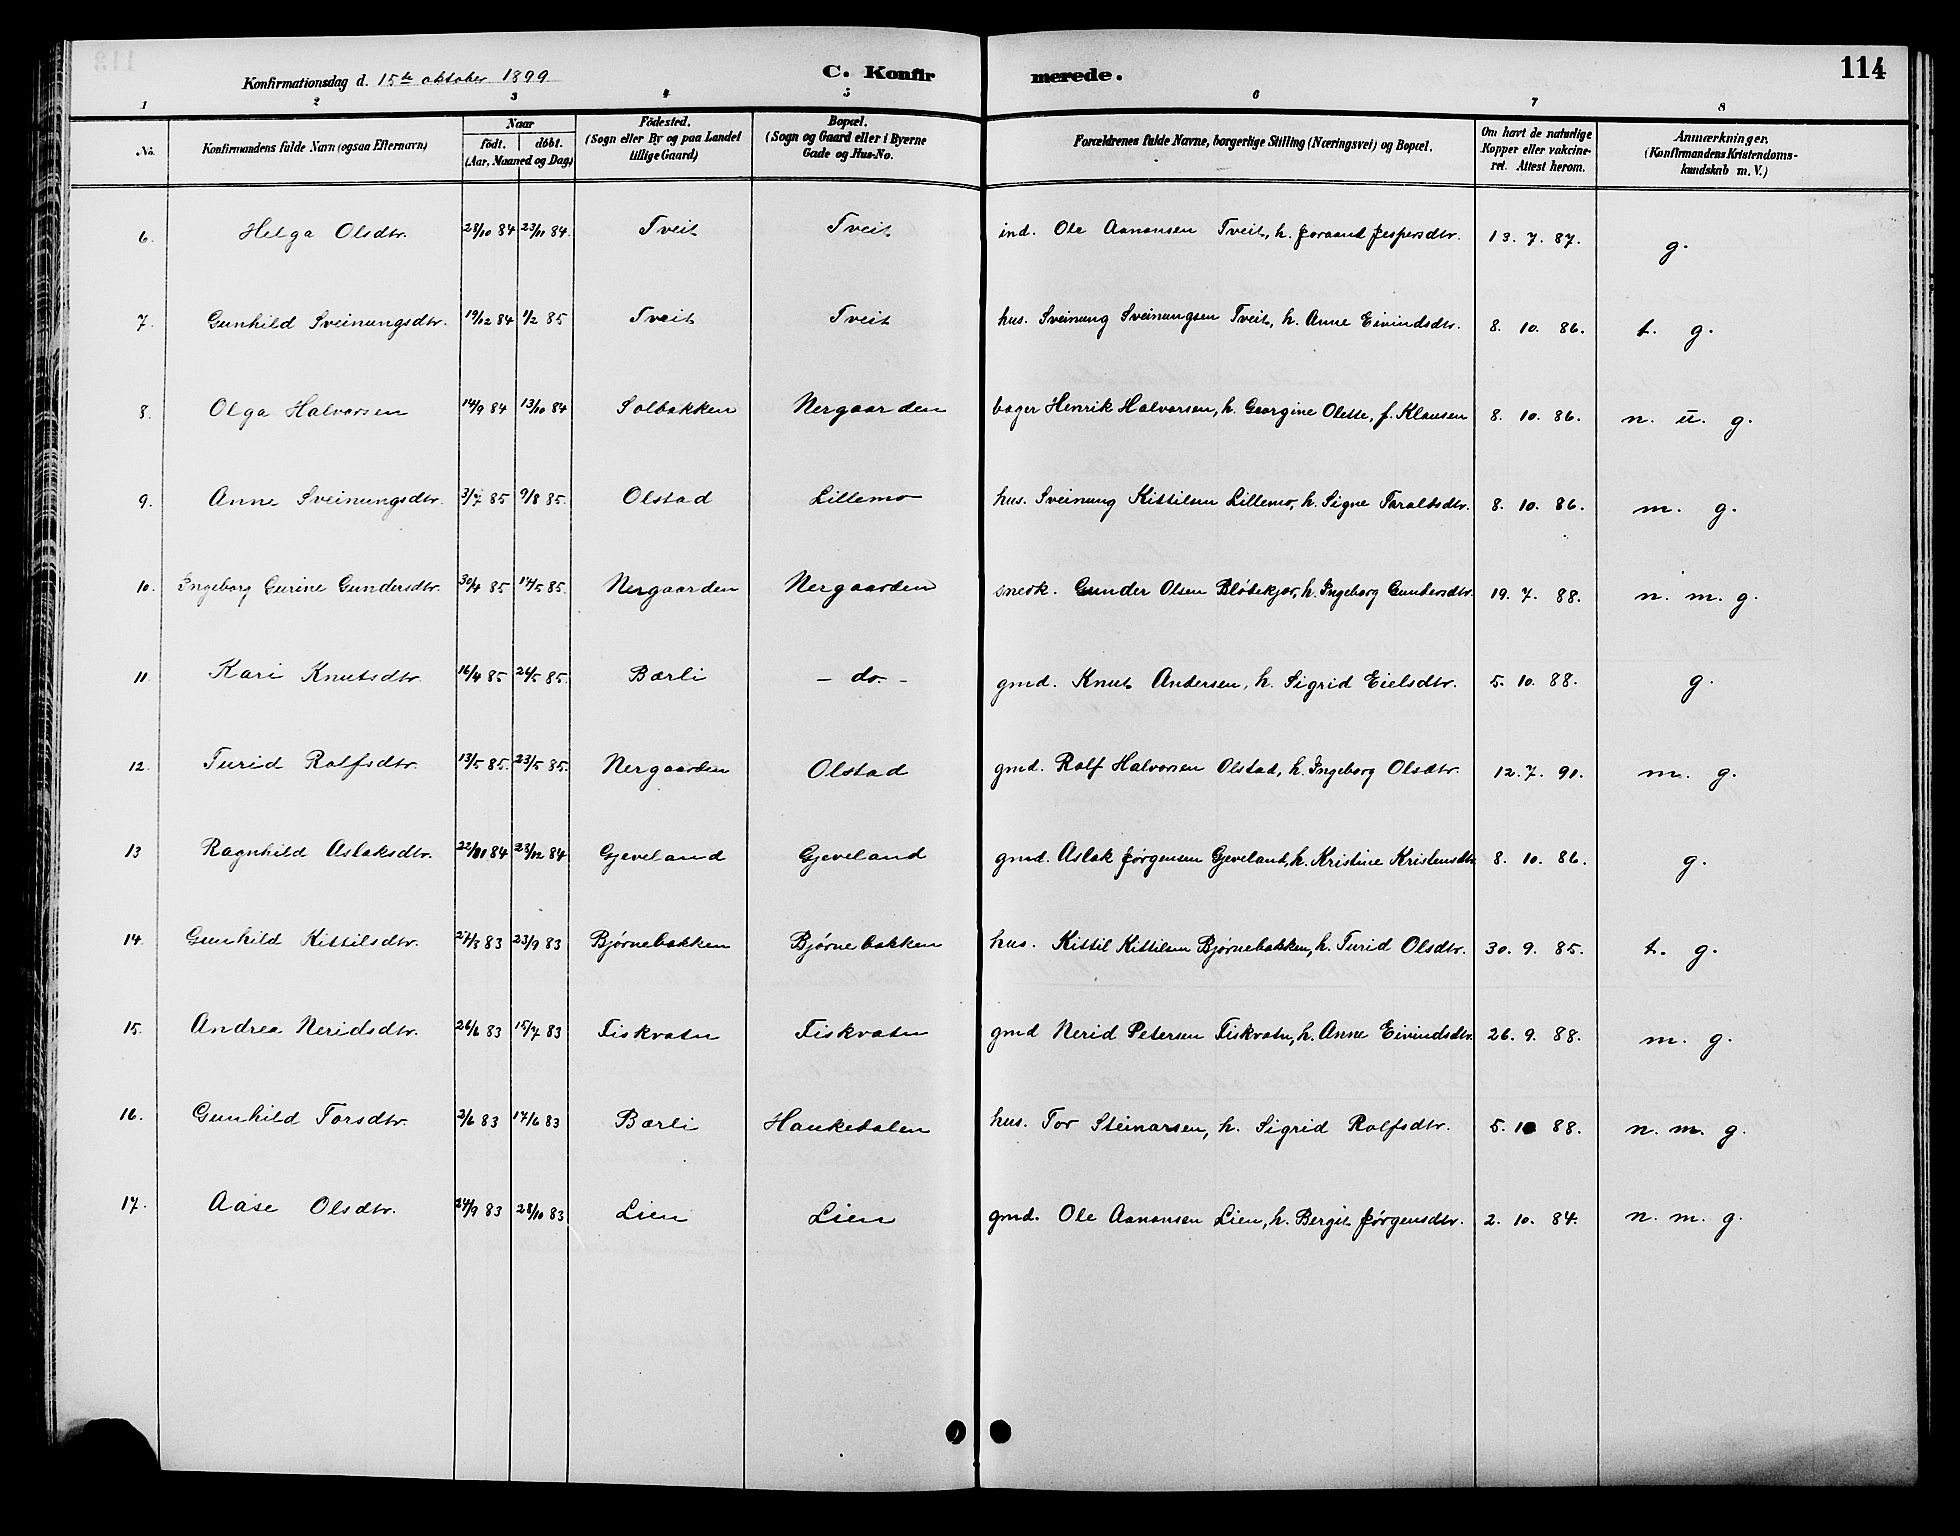 Konfirmationsdag d. 15de oktober 1899 C. Konfirmerede. 114
1 2 3 4 5 6 7 8
No. Konfirmandens fulde Navn (ogsaa Efternavn) Naar födt. döbt. (Aar, Maaned og Dag) Födested. (Sogn eller By og paa Landet tillige Gaard) Bopæl. (Sogn og Gaard eller i Byerne Gade og Hus-No. Forældrenes fulde Navne, borgerlige Stilling (Næringsvei) og Bopæl. Om havt de naturlige Kopper eller vakcineret. Attest herom. Anmærkninger. (Konfirmandens Kristendomskundskab m. V.)
6. Helga Olsdtr. 28/10 84 23/11 84. Tveit Tveit ind. Ole Aanonsen Tveit, h. Joraand Jespersdtr. 13. 7. 87. g.
7. Gunhild Sveinungsdtr. 19/12 84 1/2 85 Tveit Tveit hus. Sveinung Sveinungsen Tveit, h. Anne Eivindsdtr. 8. 10. 86. t. g.
8. Olga Halvorsen 14/9 84 13/10 84 Solbakken Nergaarden bager Henrik Halvorsen, h. Georgine Olette, f. Klausen 8. 10. 86. n. u. g.
9. Anne Sveinungsdtr. 3/7 85 9/8 85. Olstad Lillemo hus. Sveinung Kittilsen Lillemo, h. Signe Taraldsdtr. 8. 10. 86. m. g.
10. Ingeborg Gurine Gundersdtr. 30/4 85 14/5 85. Nergaarden Nergaarden snedk. Gunder Olsen Blödekjær, h. Ingeborg Gundersdtr. 19. 7. 88. n. m. g.
11. Kari Knutsdtr. 16/4 85 24/5 85. Bærli - do. - gmd. Knut Andersen, h. Sigrid Eielsdtr. 5. 10. 88. g.
12. Turid Rolfsdtr. 13/5 85. 23/5 85. Nergaarden Olstad gmd. Rolf Halvorsen Olstad, h. Ingeborg Olsdtr. 12. 7. 91. m. g.
13 Ragnhild Aslaksdtr. 22/11 84 28/12 84 Gjeveland Gjeveland gmd. Aslak Jørgensen Gjeveland, h. Kristine Kristensdtr. 8. 10. 86. g.
14. Gunhild Kittilsdtr. 27/8 83 23/9 83 Bjørnebakken Bjørnebakken hus. Kittil Kittilsen Bjørnebakken, h. Turid Olsdtr. 30. 9. 85. t. g.
15. Andrea Neridsdtr. 26/6 83 15/7 83 Fiskvatn Fiskvatn gmd Nerid Petersen Fiskvatn, h. Anne Eivindsdtr. 26. 9. 88. m. g.
16. Gunhild Torsdtr. 2/6 83 17/6 83 Bærli Haukedalen hus. Tor Steinarsen, h. Sigrid Rolfsdtr. 5. 10 88. n. m. g.
17. Aase Olsdtr. 24/9 83 28/10 83 Lien Lien gmd. Ole Aanonsen Lien, h. Bergit Jørgensdtr. 2. 10. 84. n. m. g.